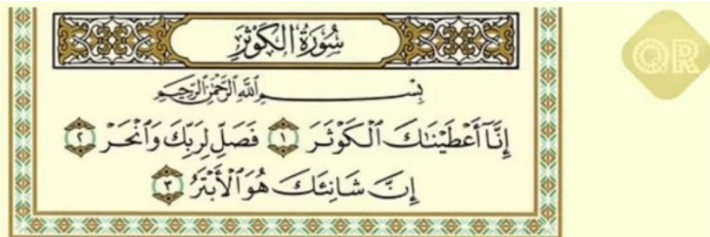 سُورَةُ الكَوۡثَرِ
QR
بِسۡمِ ٱللَّهِ ٱلرَّحۡمَٰنِ ٱلرَّحِيمِ
إِنَّآ أَعۡطَيۡنَٰكَ ٱلۡكَوۡثَرَ ١ فَصَلِّ لِرَبِّكَ وَٱنۡحَرۡ ٢
إِنَّ شَانِئَكَ هُوَ ٱلۡأَبۡتَرُ ٣